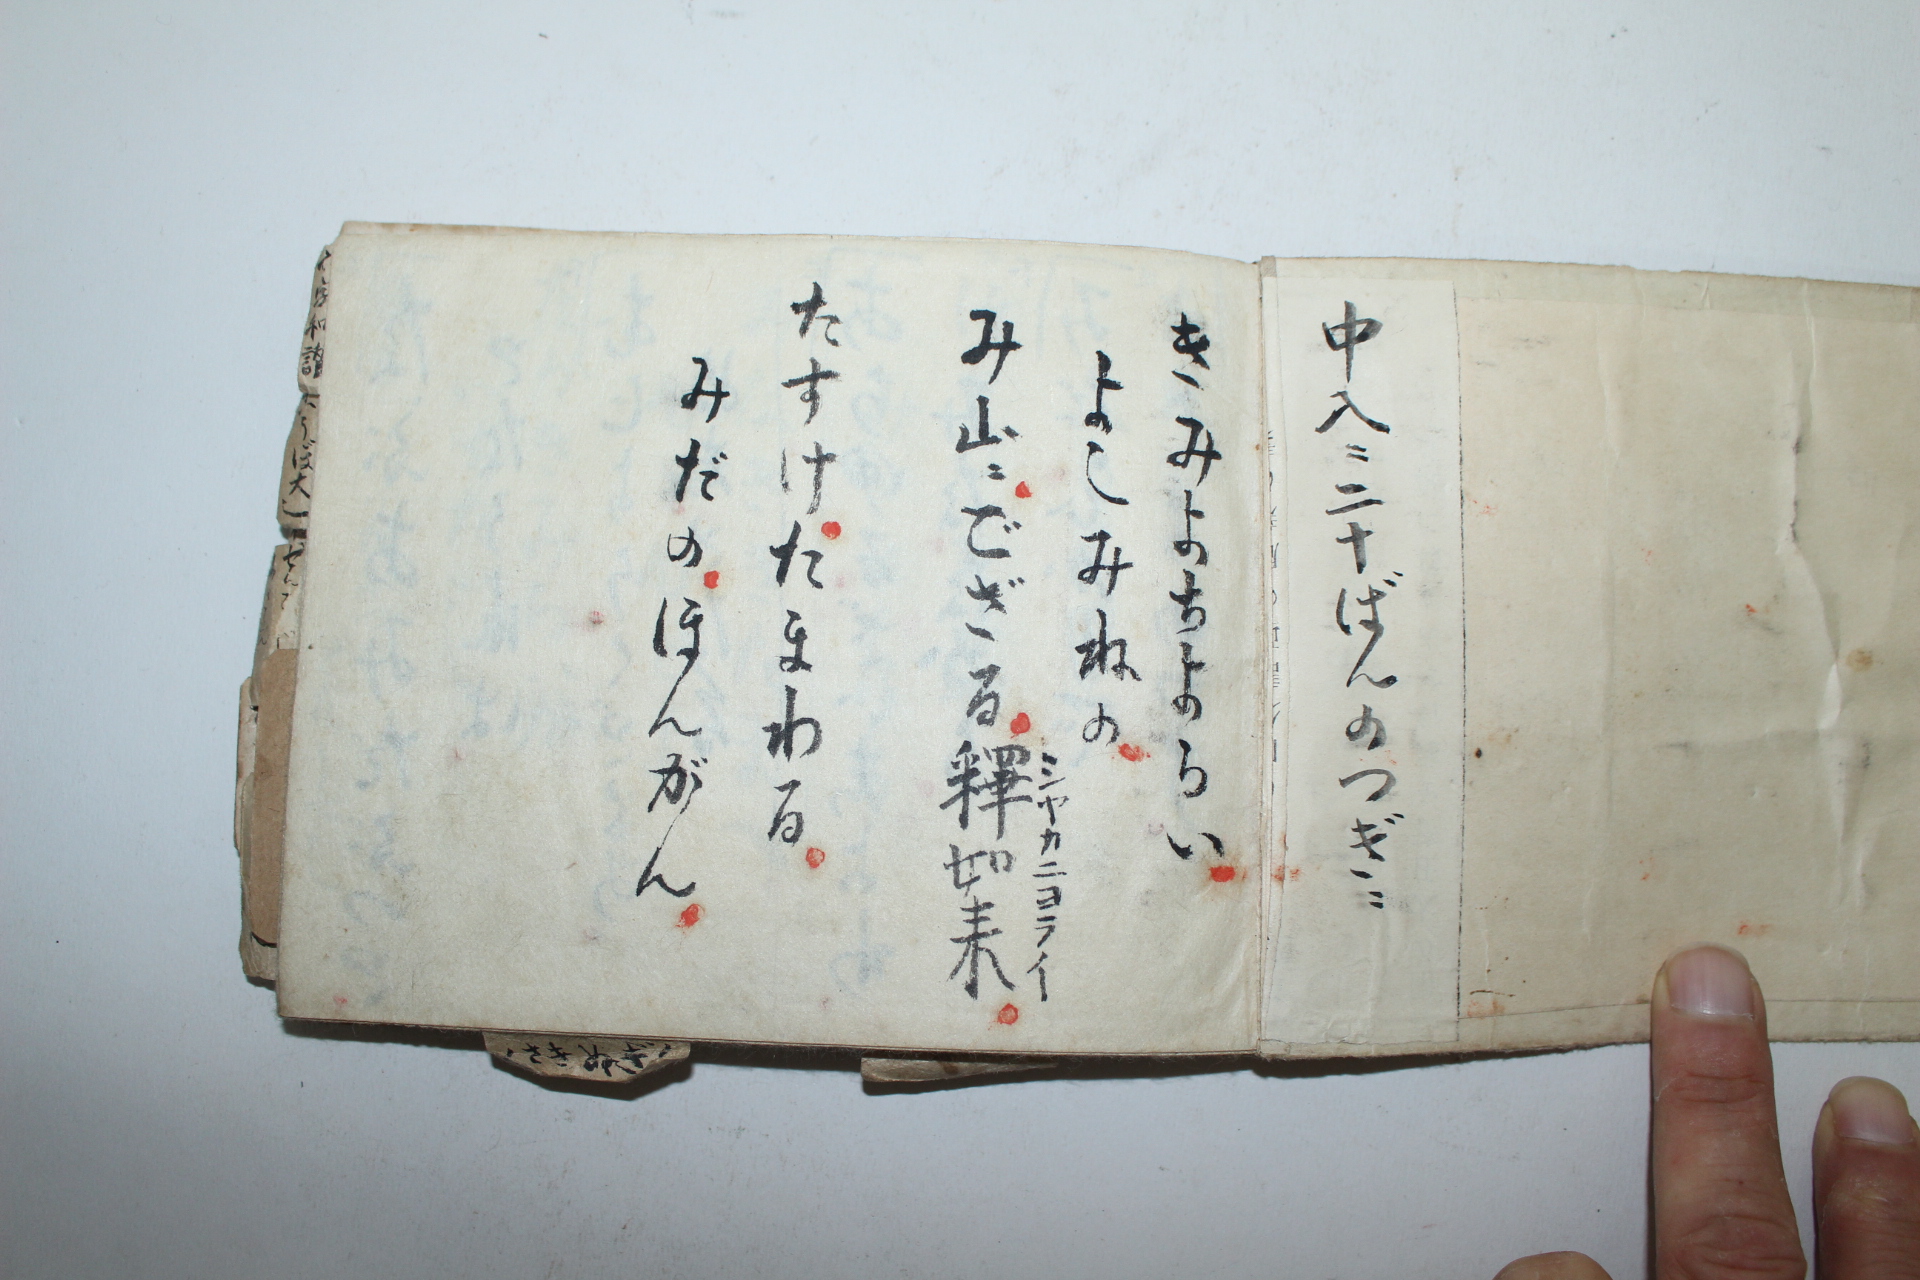 中入ニ二十ばんのつぎニ
きみよちよらい
よこみねの
み山ニござる釋如来
シヤカニヨライ
たすけたまわる
みだのほんがん